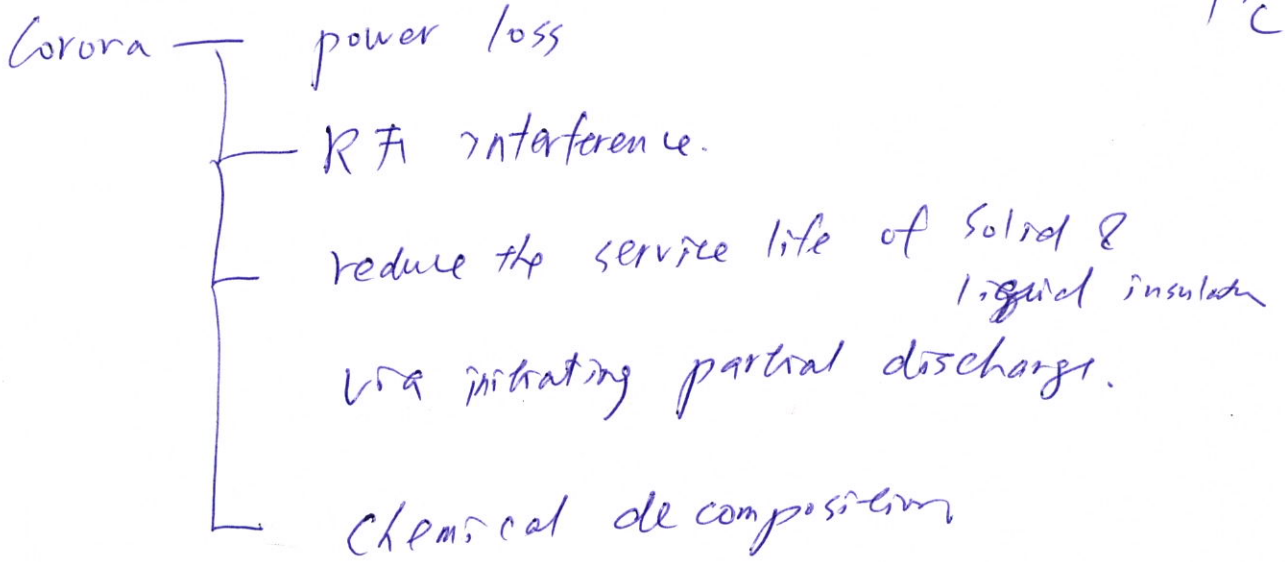 Corora power loss
RF interference.
reduce the service life of Solid &
liquid insulator
via initiating partial discharge.
Chemical decomposition